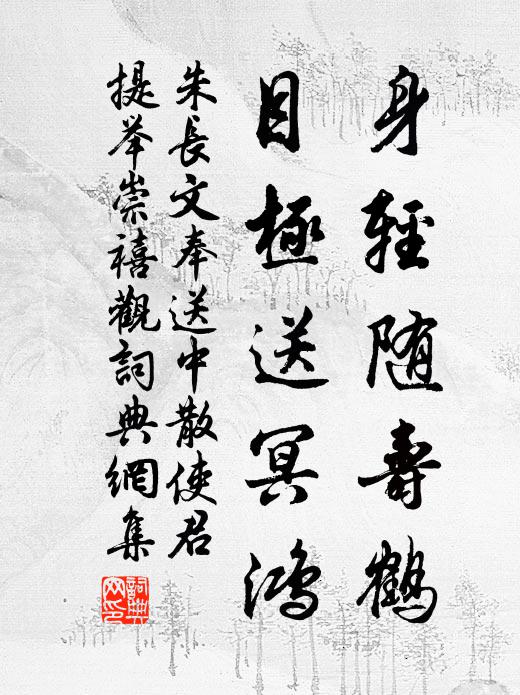 身輕隨壽鶴
目極送冥鴻
朱長文奉送中散使君
提举崇禧觀詞典網集
詞典网印